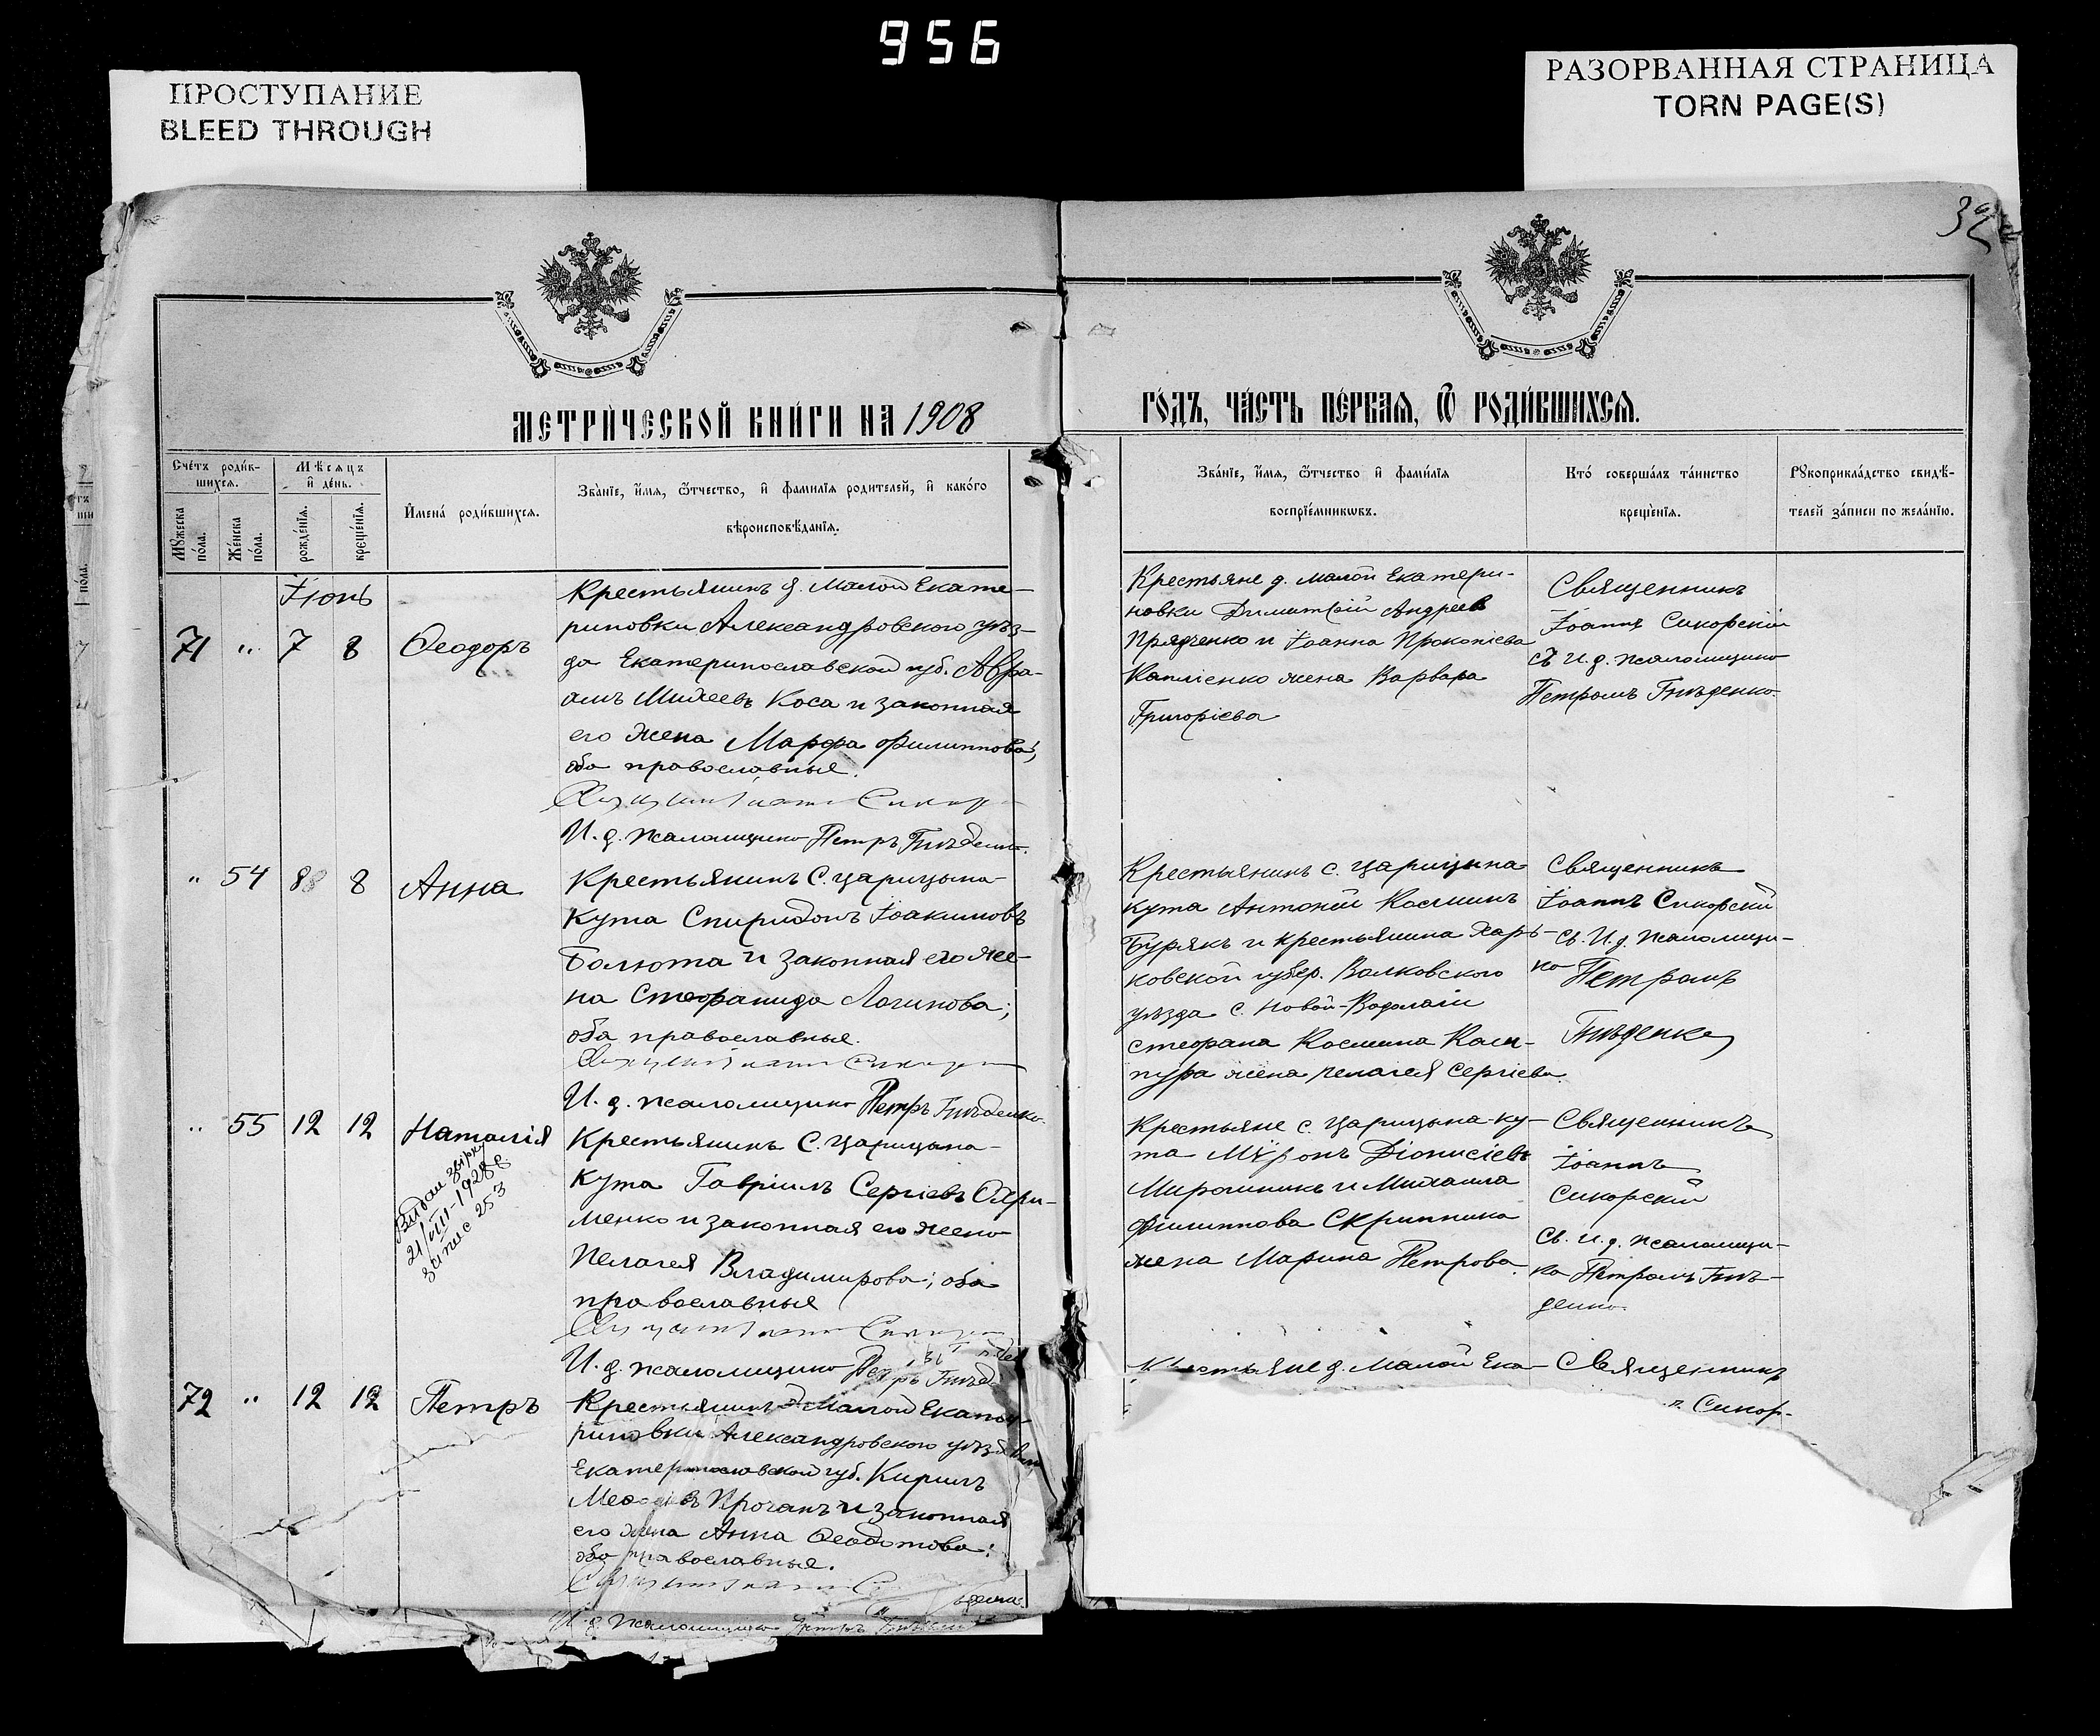 956
ПРОСТУПАНИЕ
BLEED THROUGH
РАЗОРВАННАЯ СТРАНИЦА
TORN PAGE(S)
МЕТРИ́ЧЕСКОЙ КНИ́ГИ НА 1908
ГО́ДЪ, ЧА́СТЬ ПЕ́РВАѦ, Ѿ РОДИ́ВШИХСѦ.
Сче́тъ роди́в-
шихсѧ.
Мѣ́сѧцъ
и де́нь.
Мꙋ́жеска
по́ла.
Же́нска
по́ла.
рожде́нїѧ.
креще́нїѧ.
И҆мена̀ роди́вшихсѧ.
Зва́нїе, и҆́мѧ, ѻ҆́тчество, и҆ фамилїѧ родителей, и҆ како́го
вѣроисповѣ́данїѧ.
Зва́нїе, и҆́мѧ, ѻ҆́тчество и҆ фамилїѧ
воспрїе́мникѡвъ.
Кто̀ соверша́лъ та́инство
креще́нїѧ.
Рꙋкоприкла́дство свидѣ́-
телей за́писи по жела́нїю.
Іюнь
71 " 7 8 Ѳеодоръ
Крестьянинъ д. Малой Екате-
риновки Александровского уѣз-
да Екатеринославской губ. Авра-
амъ Михеевъ Коса и законная
его жена Марфа Филиппова;
оба православные.
И. д. псаломщика Петръ Гнѣденко
Крестьяне д. Малой Екатери-
новки Димитрій Андреев
Прядченко и Іоанна Прокопіева
жена Варвара
Григоріева
Священникъ
Іоаннъ Сикорскій
съ И. д. псаломщика
Петромъ Гнѣденко.
" 54 8 8 Анна
Крестьянинъ с. Царицына-
Кута Спиридонъ Іоакимовъ
Болюта и законная его же-
на Стефанида Логинова;
оба православные.
И. д. псаломщика Петръ Гнѣденко
Крестьянинъ с. Царицына
Кута Антоній Косминъ
Бурякъ и крестьянина Харь-
ковской губер. Валковского
уѣзда с. Новой-Водолаги
Стефана Космина Каш-
пура жена Пелагея Сергіева.
Священникъ
Іоаннъ Сикорскій
съ И. д. псаломщи-
ка Петромъ
Гнѣденко
" 55 12 12 Наталія
Видан
21/VIII-1928 р.
запис 253
Крестьянинъ с. Царицына-
Кута Гавріилъ Сергіевъ Охри-
менко и законная его жена
Пелагея Владимирова; оба
православные
И. д. псаломщика Петръ Гнѣд
Крестьяне с. Царицына-Ку-
та Мѵронъ Діонисіевъ
Мирошникъ и Михаила
Филиппова Скрипника
жена Марина Петрова.
Священникъ
Іоаннъ
Сикорскій
съ И. д. псаломщи-
ка Петромъ Гнѣ-
денко.
72 " 12 12 Петръ
Крестьянинъ д. Малой Екате-
риновки Александровского уѣзда
Екатеринославской губ. Кирилъ
Прочанъ и законная
его жена Анна Ѳеодотова;
оба православные.
И. д. псаломщика Петръ Гнѣденко
Крестьяне д. Малой Ека-
Священникъ
Сикор-